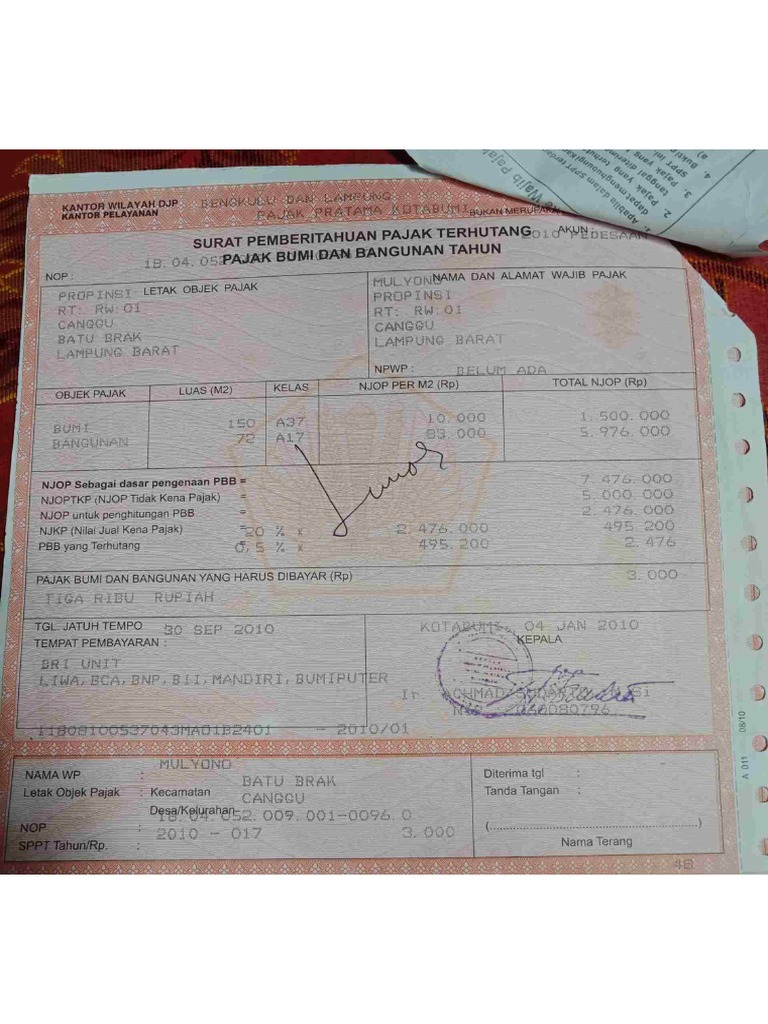 KANTOR WILAYAH DJP BENGKULU DAN LAMPUNG
KANTOR PELAYANAN PAJAK PRATAMA KOTABUMI BUKAN MERUPAKA
SURAT PEMBERITAHUAN PAJAK TERHUTANG AKUN :
PAJAK BUMI DAN BANGUNAN TAHUN 2010 PEDESAAN
NOP : 18.04.052
LETAK OBJEK PAJAK
PROPINSI
RT: RW:01
CANGGU
BATU BRAK
LAMPUNG BARAT
NAMA DAN ALAMAT WAJIB PAJAK
MULYONO
PROPINSI
RT: RW:01
CANGGU
LAMPUNG BARAT
NPWP : BELUM ADA
OBJEK PAJAK LUAS (M2) KELAS NJOP PER M2 (Rp) TOTAL NJOP (Rp)
BUMI 150 A37 10.000 1.500.000
BANGUNAN 72 A17 83.000 5.976.000
NJOP Sebagai dasar pengenaan PBB = 7.476.000
NJOPTKP (NJOP Tidak Kena Pajak) = 5.000.000
NJOP untuk penghitungan PBB = 2.476.000
NJKP (Nilai Jual Kena Pajak) = 20 % x 2.476.000 495.200
PBB yang Terhutang = 0,5 % x 495.200 2.476
PAJAK BUMI DAN BANGUNAN YANG HARUS DIBAYAR (Rp) 3.000
TIGA RIBU RUPIAH
TGL. JATUH TEMPO : 30 SEP 2010
TEMPAT PEMBAYARAN :
BRI UNIT
LIWA,BCA,BNP,BII,MANDIRI,BUMIPUTER
KOTABUMI, 04 JAN 2010
KEPALA
Ir. ACHMAD
NIP. 060080796
11808100537043MA01B2401 - 2010/01
NAMA WP : MULYONO
Letak Objek Pajak : Kecamatan BATU BRAK
Desa/Kelurahan CANGGU
NOP : 18.04.052.009.001-0096.0
SPPT Tahun/Rp. : 2010 - 017 3.000
Diterima tgl :
Tanda Tangan :
(..............................)
Nama Terang
48
A 011 08/10